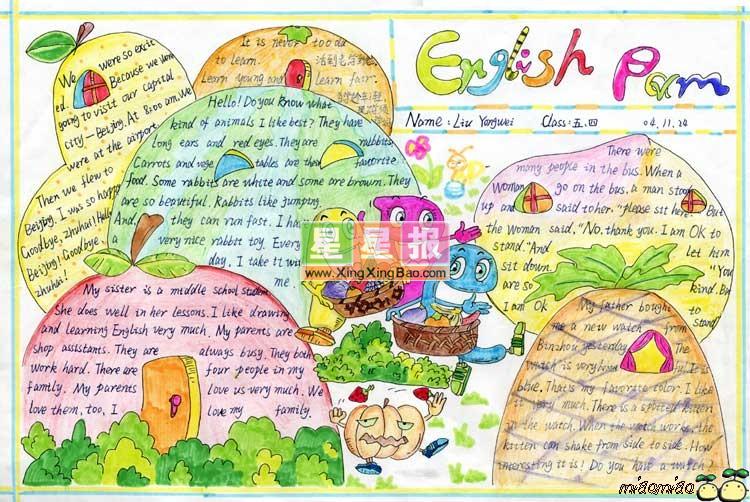 English Pam
Name: Liu Yangwei Class: 五、四 04.11.24
We were so excit
ed. Because we were
going to visit our capital
city — Beijing. At 8:00 am. We
were at the airport.
Then we flew to
Beijing. I was so happy
Goodbye, zhuhai! Hello
Beijing! Goodbye,
zhuhai!
It is never too
to learn.
Learn young and learn fair.
Hello! Do you know what
kind of animals I like best? They have
Long ears and red eyes. They are rabbits
Carrots and vege tables are their favorite
food. Some rabbits are white and some are brown. They
are so beautiful. Rabbits like jumping.
And, they can run fast. I ha
a very nice rabbit toy. Every
day, I take it wi
me.
星星报
www.XingXingBao.com
There were
many people in the bus. When a
Woman go on the bus, a man stoop
up and said to her. "please sit here." But
the Woman said, "No. thank you. I am OK to
stand." And let him
sit down. "You
are so kind. But
I am Ok to
stand."
My sister is a middle school student
She does well in her lessons. I like drawing
and learning English very much. My parents are
shop assistants. They are always busy. They both
work hard. There are four people in my
family. My parents love us very much. We
love them, too. I love my family.
My father bought
me a new watch from
Binzhou yesterday. The
watch is very ful. It is
blue. That's my favorite color. I like
it very much. There is a spotted kitten
in the watch. When the watch works, the
kitten can shake from side to side. How
interesting it is! Do you have a watch?
miaomiao